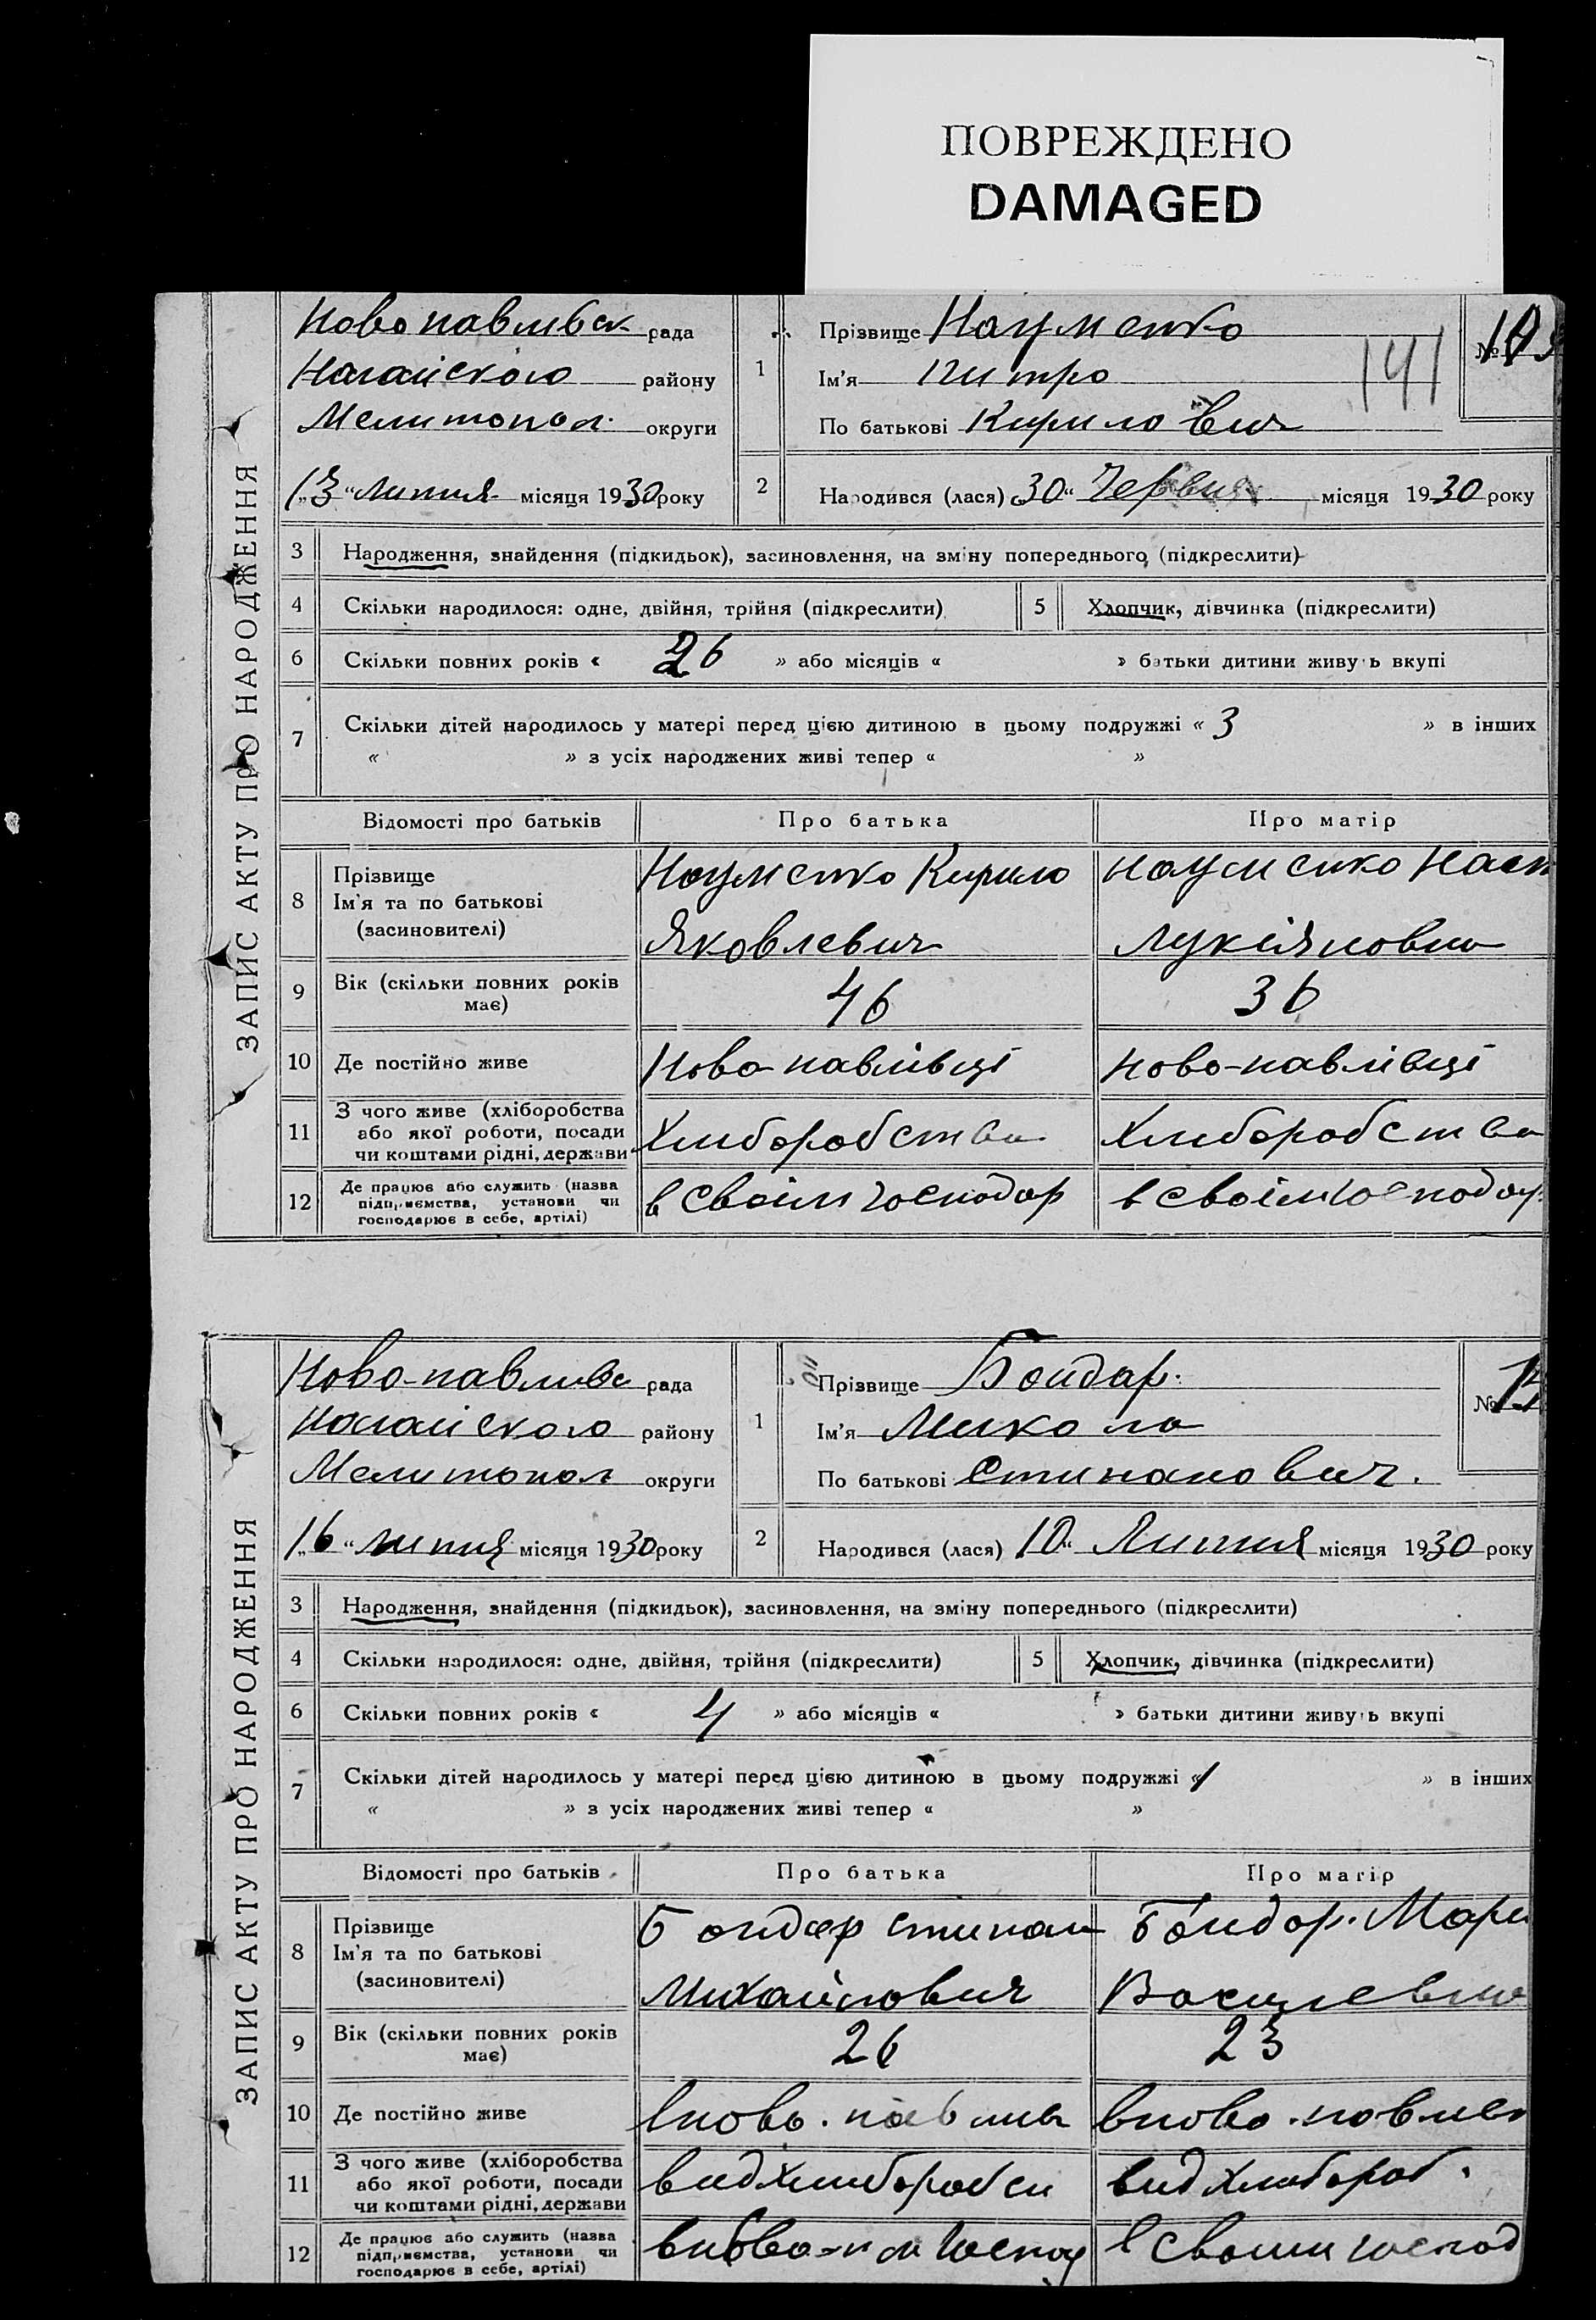 ПОВРЕЖДЕНО
DAMAGED
ЗАПИС АКТУ ПРО НАРОДЖЕННЯ
Новопавлівск рада
Нагайского району
Мелитопол. округи
„13“ Липня місяця 1930 року
1
Прізвище Науменко
Ім'я Питро
По батькові Кирилович
141
№
2
Народився (лася) „30“ Червня місяця 1930 року
3 Народження, знайдення (підкидьок), засиновлення, на зміну попереднього (підкреслити)
4 Скільки народилося: одне, двійня, трійня (підкреслити) 5 Хлопчик, дівчинка (підкреслити)
6 Скільки повних років « 26 » або місяців « » батьки дитини живуть вкупі
7 Скільки дітей народилось у матері перед цією дитиною в цьому подружжі « 3 » в інших
« » з усіх народжених живі тепер « »
Відомості про батьків Про батька Про матір
8 Прізвище Ім'я та по батькові (засиновителі)
Науменко Кирило Яковлевич
Науменко Наст Лукіяновна
9 Вік (скільки повних років має) 46 36
10 Де постійно живе Ново-павлівці Ново-павлівці
11 З чого живе (хліборобства або якої роботи, посади чи коштами рідні, держави
Хлиборобства Хлиборобства
12 Де працює або служить (назва підприємства, установи чи господарює в себе, артілі)
в своїм господар в своїм господар
ЗАПИС АКТУ ПРО НАРОДЖЕННЯ
Ново-павливс рада
Нагайского району
Мелитопол округи
„16“ липня місяця 1930 року
1
Прізвище Бондар.
Ім'я Микола
По батькові Стипанович.
№
2
Народився (лася) „10“ Липня місяця 1930 року
3 Народження, знайдення (підкидьок), засиновлення, на зміну попереднього (підкреслити)
4 Скільки народилося: одне, двійня, трійня (підкреслити) 5 Хлопчик, дівчинка (підкреслити)
6 Скільки повних років « 4 » або місяців « » батьки дитини живуть вкупі
7 Скільки дітей народилось у матері перед цією дитиною в цьому подружжі « 1 » в інших
« » з усіх народжених живі тепер « »
Відомості про батьків Про батька Про матір
8 Прізвище Ім'я та по батькові (засиновителі)
Бондар Стипан Михайлович
Бондар. Мари Василевна
9 Вік (скільки повних років має) 26 23
10 Де постійно живе вново. павлив вново. павлив
11 З чого живе (хліборобства або якої роботи, посади чи коштами рідні, держави
вид хлиборобси вид хлибороб.
12 Де працює або служить (назва підприємства, установи чи господарює в себе, артілі)
в своим господ